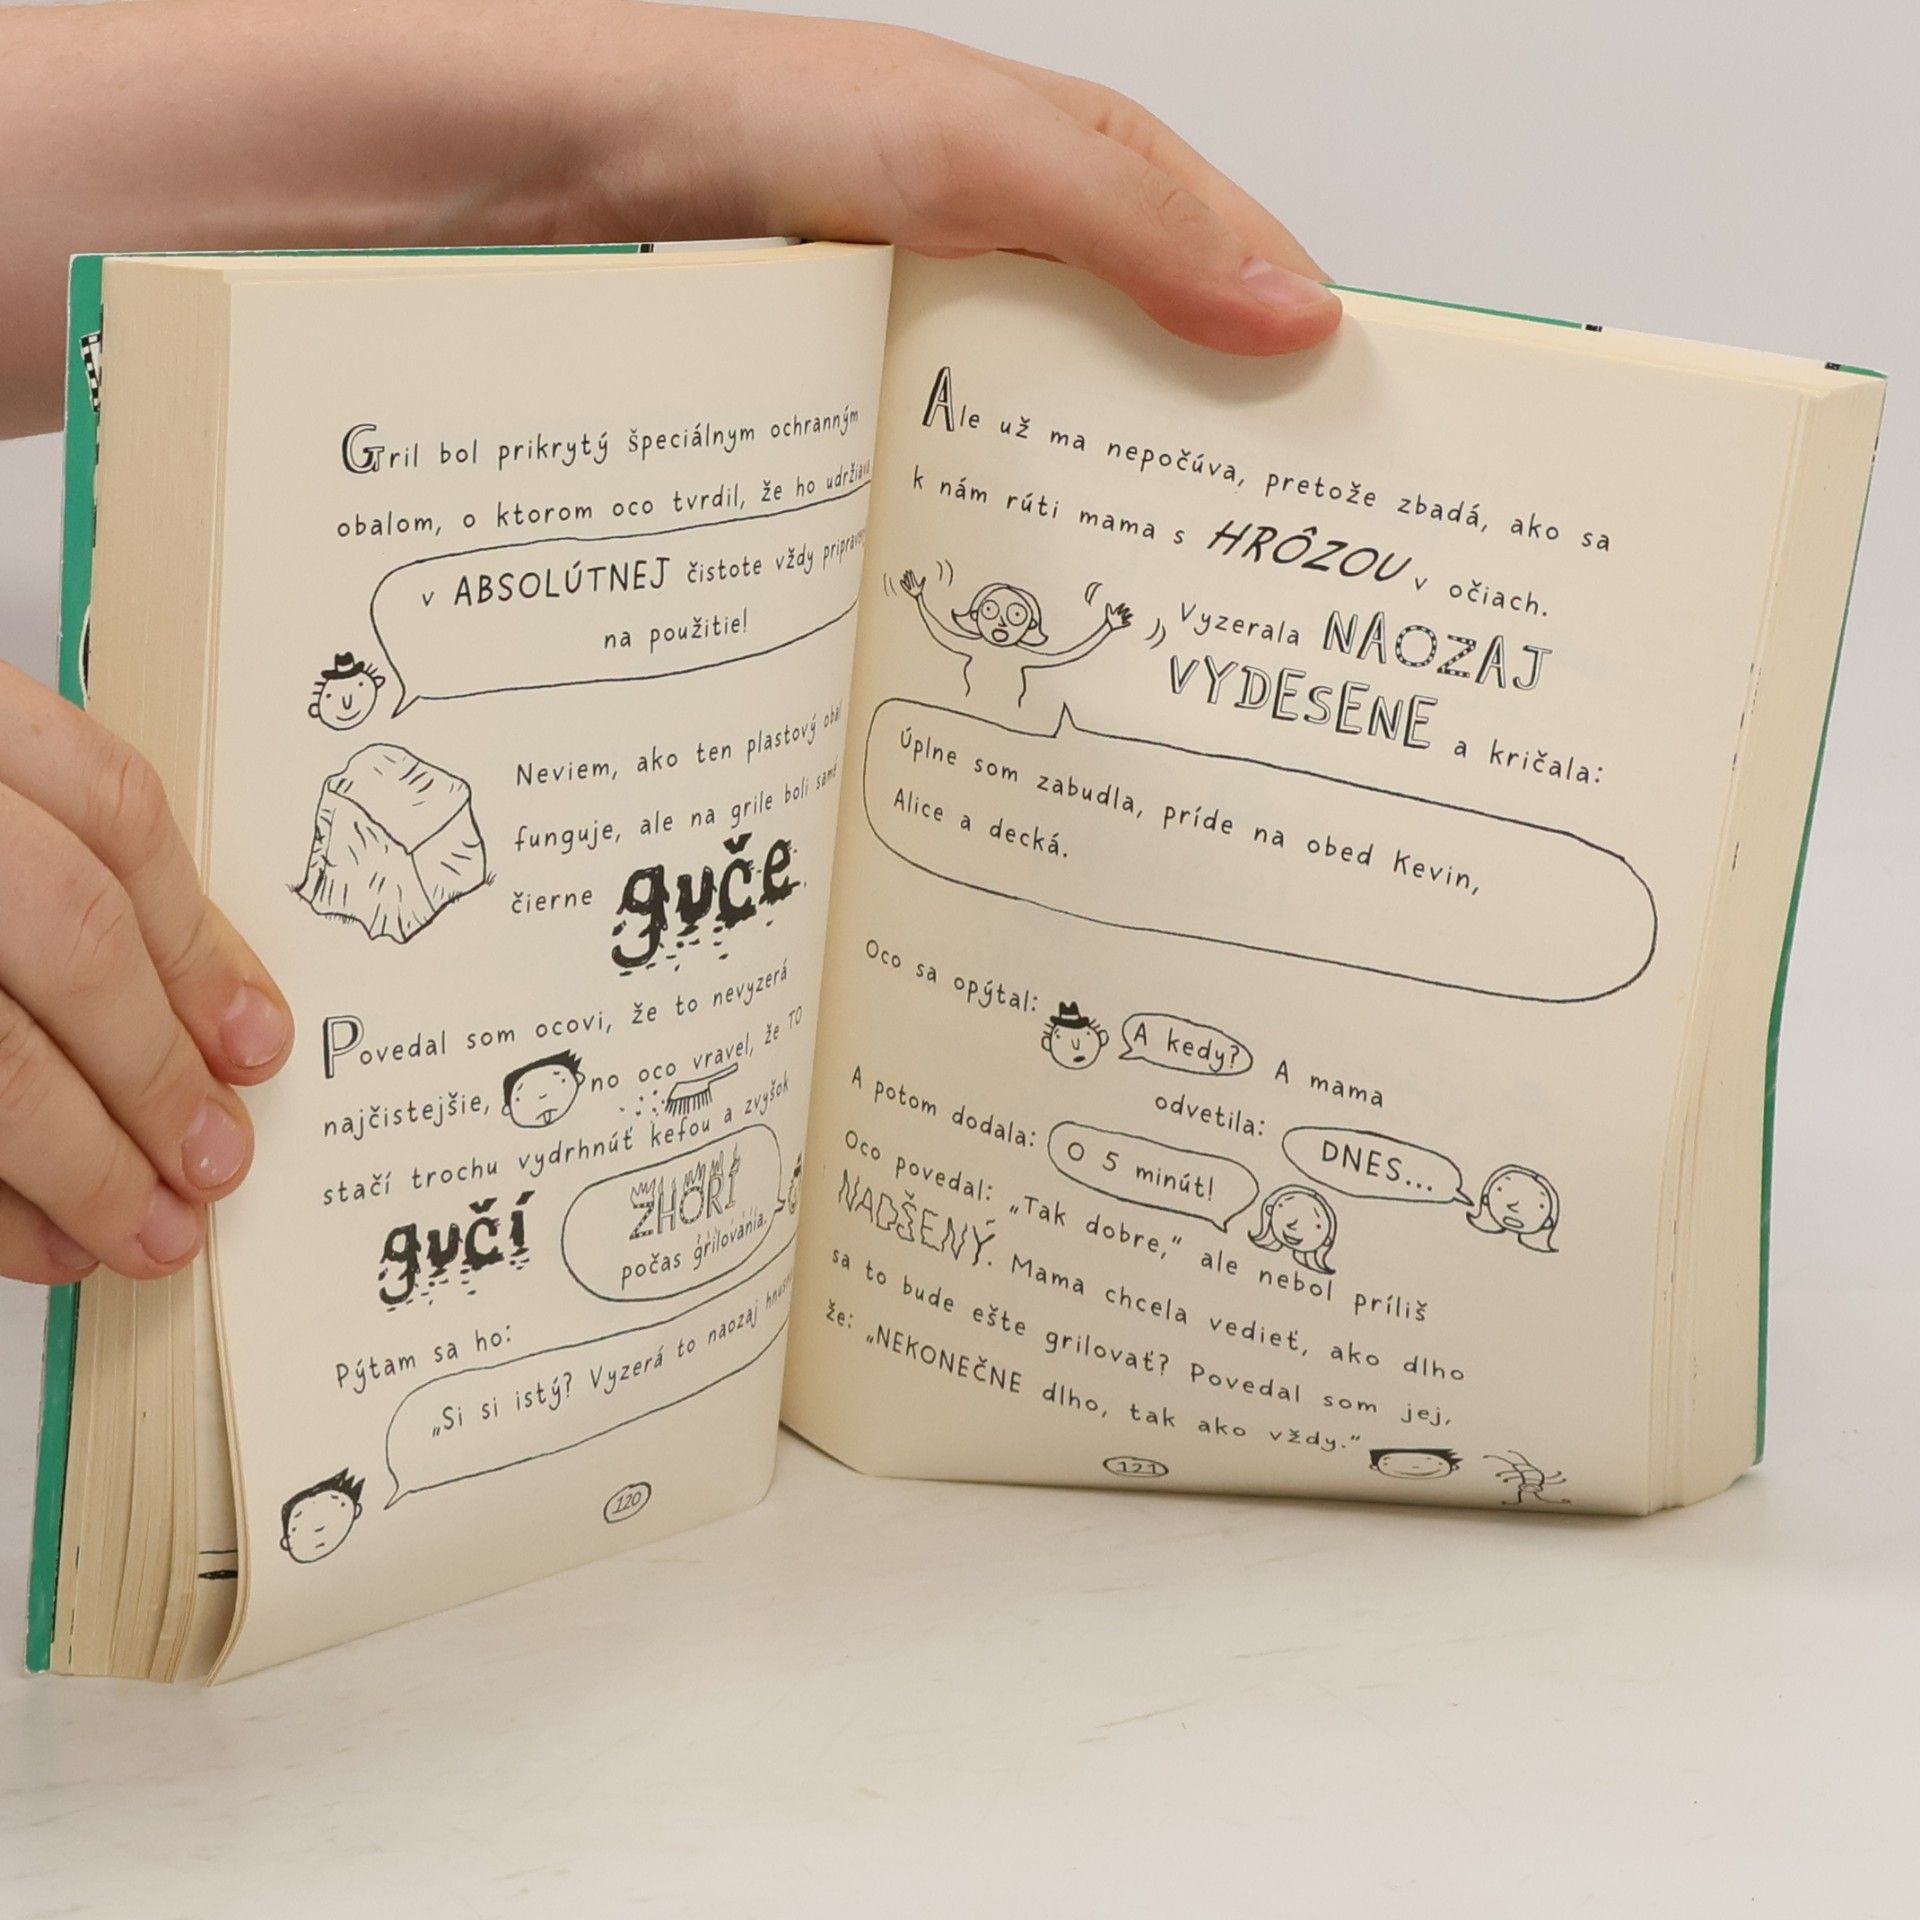 Gril bol prikrytý špeciálnym ochranným
obalom, o ktorom oco tvrdil, že ho
v ABSOLÚTNEJ čistote vždy
na použitie!
Neviem, ako ten plastový obal
funguje, ale na grile boli samé
čierne guče
Povedal som ocovi, že to nevyzerá
najčistejšie, no oco vravel, že TO
stačí trochu vydrhnúť kefou a zvyšok
gučí ZHORÍ
počas grilovania.
Pýtam sa ho:
„Si si istý? Vyzerá to naozaj
120
Ale už ma nepočúva, pretože zbadá, ako sa
k nám rúti mama s HRÔZOU v očiach.
Vyzerala NAOZAJ
VYDESENE a kričala:
Úplne som zabudla, príde na obed Kevin,
Alice a decká.
Oco sa opýtal: A kedy? A mama
odvetila: DNES...
A potom dodala: O 5 minút!
Oco povedal: „Tak dobre,“ ale nebol príliš
NADŠENÝ. Mama chcela vedieť, ako dlho
sa to bude ešte grilovať? Povedal som jej,
že: „NEKONEČNE dlho, tak ako vždy.“
121